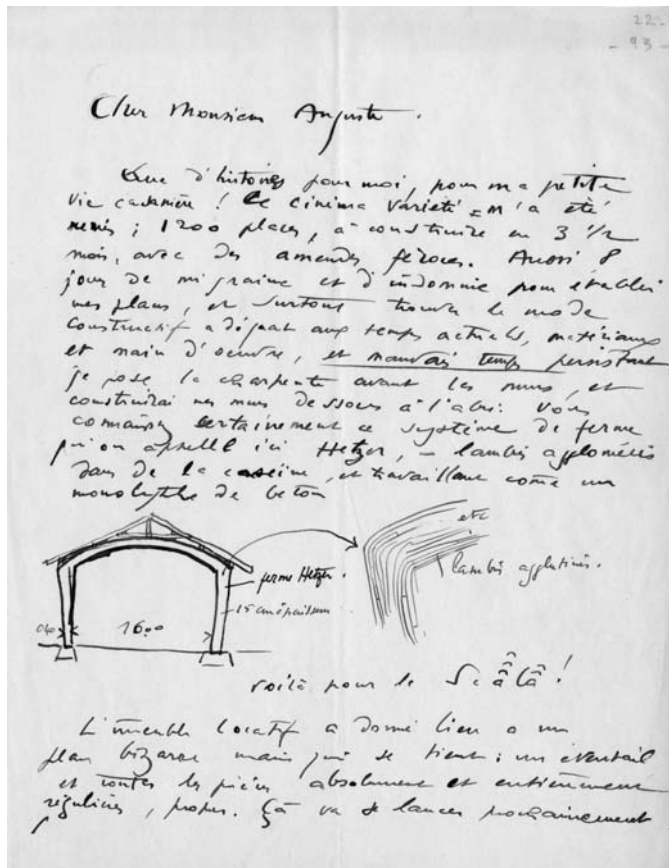 22-
- 93 -
Cher Monsieur Auguste.
Que d'histoires pour moi, pour ma petite
vie casanière ! Le cinéma Variété m'a été
remis ; 1200 places, à construire en 3 1/2
mois, avec des amendes féroces. Aussi 8
jours de migraine et d'insomnie pour établir
mes plans, et surtout trouver le mode
constructif adéquat aux temps actuels, matériaux
et main d'oeuvre, et mauvais temps persistant
je pose la charpente avant les murs, et
construirai mes murs dessous à l'abri. Vous
connaissez certainement ce système de ferme
qu'on appelle ici Hetzer, – lambris agglomérés
dans de la caséine, et travaillant comme un
monolythe de béton
etc
ferme Hetzer.
lambris agglutinés.
15 cm épaisseur
040
16oo
voilà pour le Scâlâ !
L'immeuble locatif a donné lieu a un
plan bizarre mais qui se tient : un éventail
et toutes les pièces absolument et entièrement
régulières, propres. Çà va se lancer prochainement